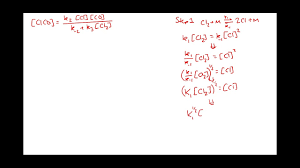 [ClCO] = k₂ [Cl][CO] / k₋₂ + k₃ [Cl₂]
Step 1 Cl₂ + M ⇌ 2Cl + M
k₁ [Cl₂] = k₋₁ [Cl]²
k₁/k₋₁ [Cl₂] = [Cl]²
(k₁/k₋₁ [Cl₂])^½ = [Cl]
(K₁ [Cl₂])^½ = [Cl]
K₁^½ [